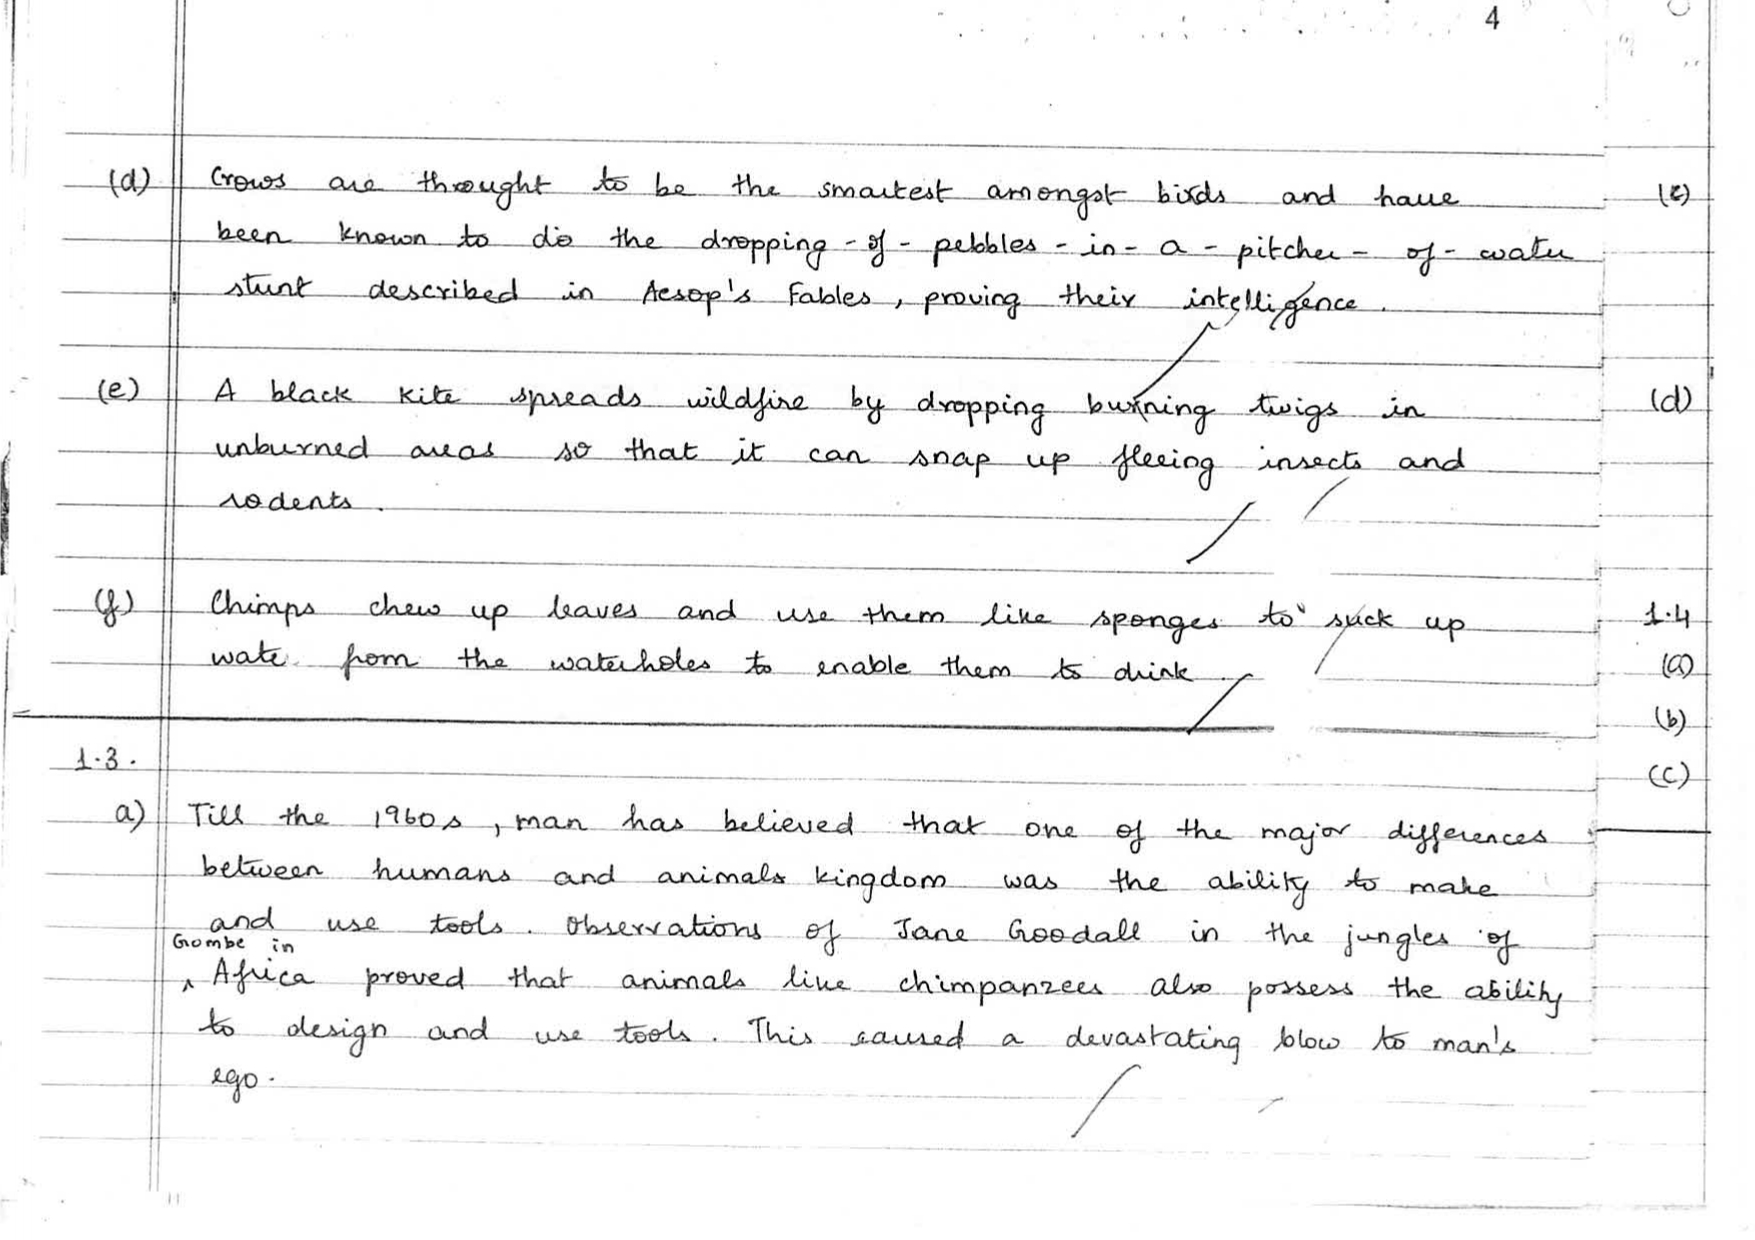 4
(d) Crows are throught to be the smartest amongst birds and have
been known to do the dropping-of-pebbles-in-a-pitcher-of-water
stunt described in Aesop's Fables, proving their intelligence.
(e) A black kite spreads wildfire by dropping burning twigs in
unburned areas so that it can snap up fleeing insects and
rodents.
(f) Chimps chew up leaves and use them like sponges to suck up
wate from the waterholes to enable them to drink.
1.3.
a) Till the 1960s, man has believed that one of the major differences
between humans and animals kingdom was the ability to make
and use tools. Observations of Jane Goodall in the jungles of
Gombe in
^ Africa proved that animals like chimpanzees also possess the ability
to design and use tools. This caused a devastating blow to man's
ego.
(c)
(d)
1.4
(a)
(b)
(c)